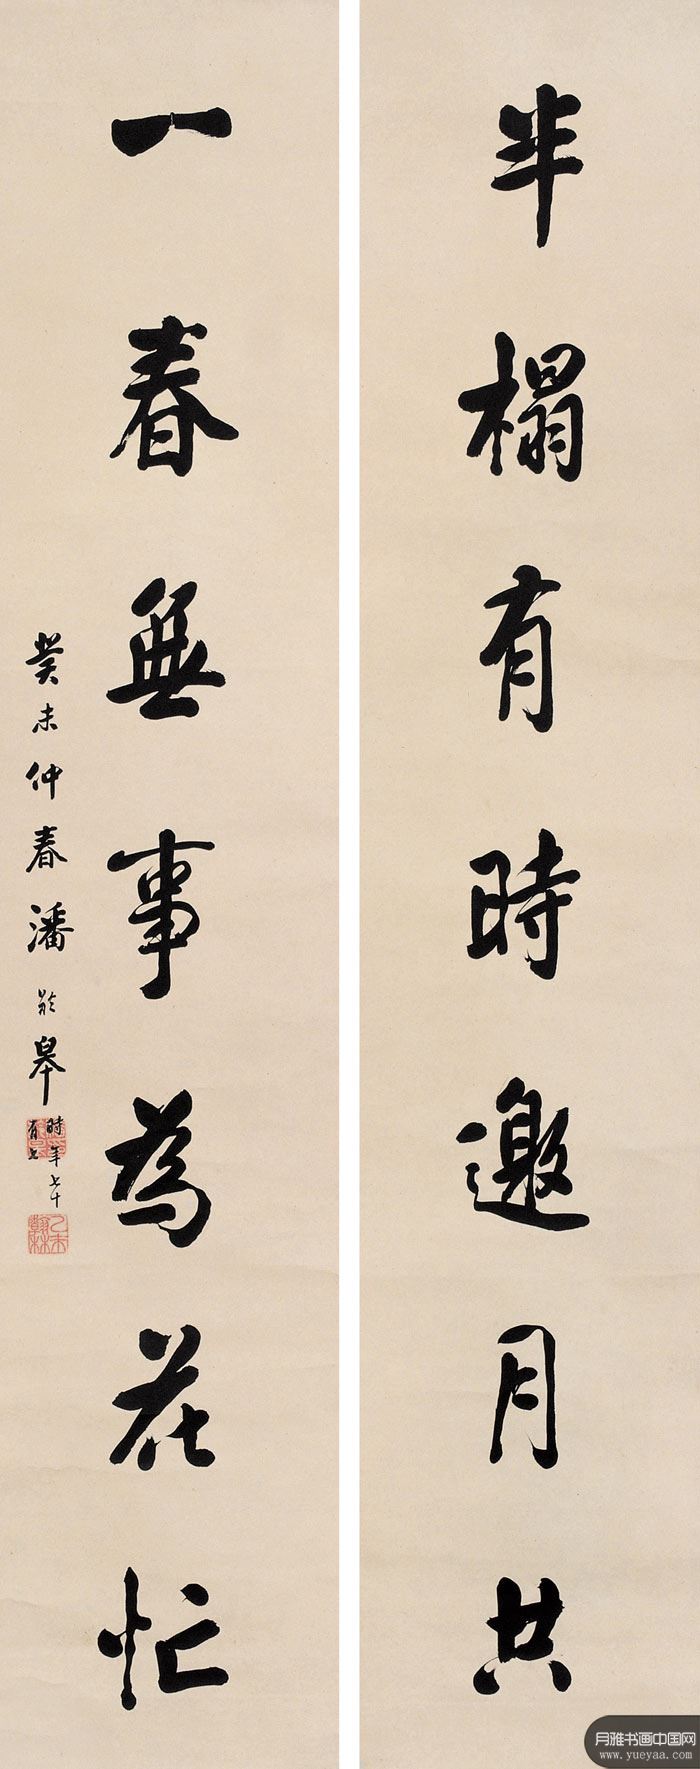 半榻有時邀月共
一春無事為花忙
癸未仲春潘齡皋
時年七十
有七
乙未翰林
月雅书画中国网
www.yueyaa.com